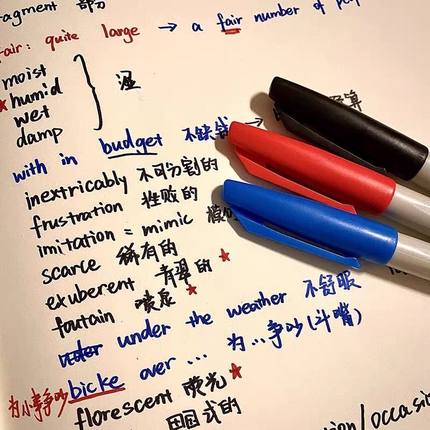 agment 部分
fair: quite large → a fair number of
moist
★ humid
wet
damp
湿
with in budget 不缺钱 → 算
inextricably 不可分割的
frustration 挫败的
imitation = mimic 模
scarce 稀有的
exuberent 青翠的 ★
foutain 喷泉 ★
under the weather 不舒服
为小事争吵 bicke over ... 为...争吵(斗嘴)
florescent 荧光 ★
田园式的
ion/occasi